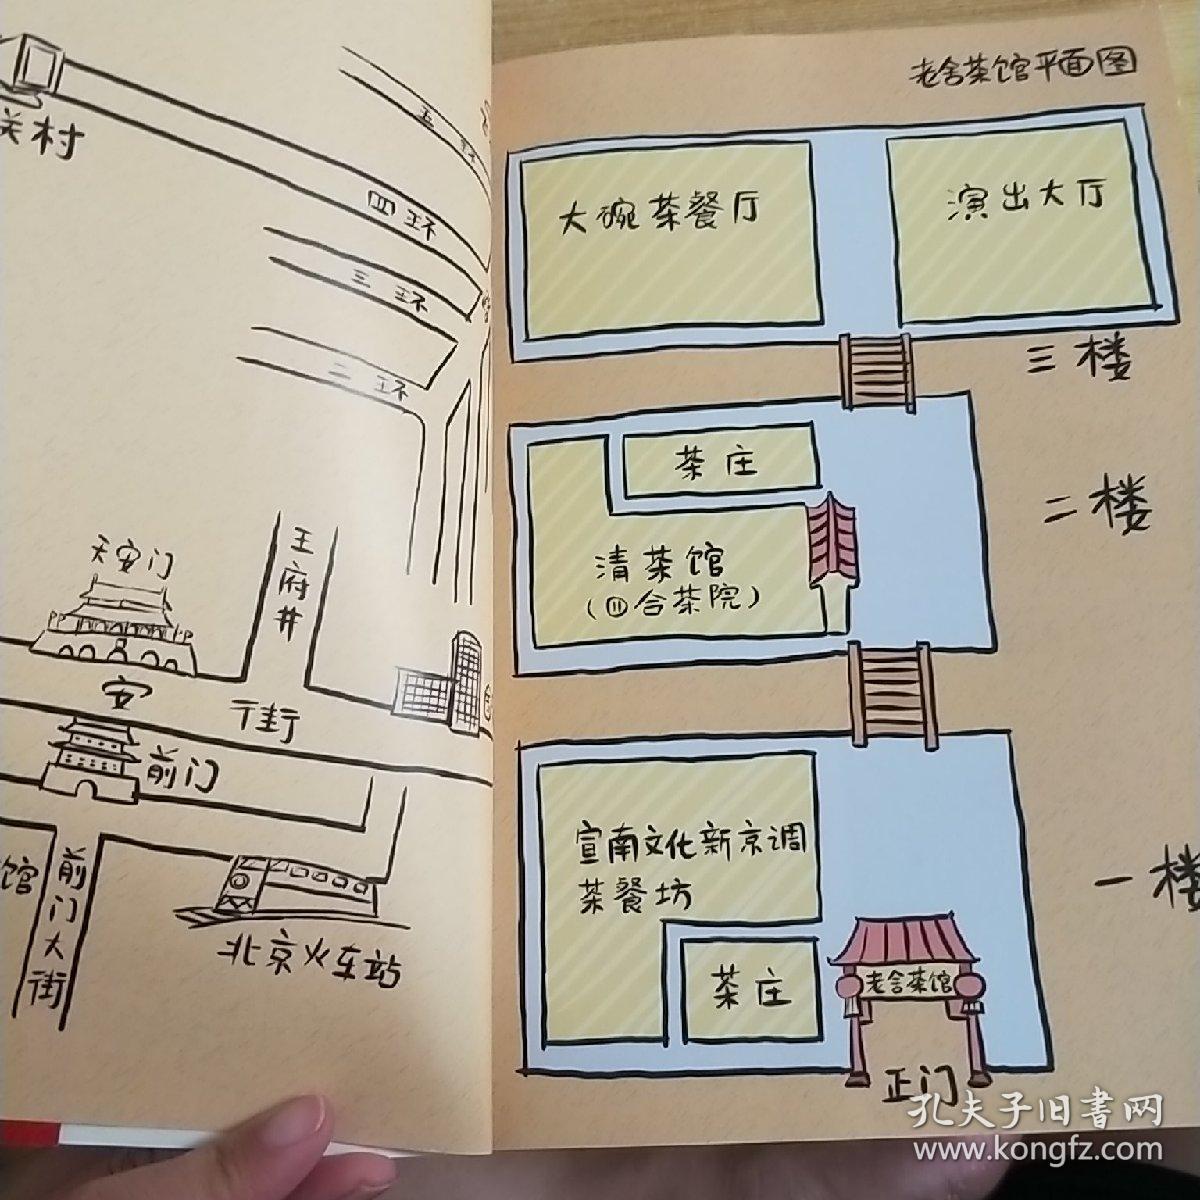 关村
五环
四环
三环
二环
天安门
王府井
安
街
前门
馆
前门大街
北京火车站
老舍茶馆平面图
大碗茶餐厅
演出大厅
三楼
茶庄
清茶馆
(四合茶院)
二楼
宣南文化新京调
茶餐坊
一楼
茶庄
老舍茶馆
正门
孔夫子旧书网
www.kongfz.com